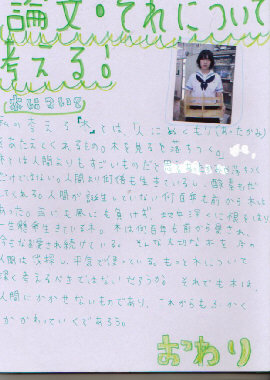 論文・それについて
考える!
木について
私の考える『木』とは、「人にぬくもり(あたたかみ)
をあたえてくれるもの。木を見ると落ちつく。
木は人間よりもすごいものだと
だけではない。人間より何倍も生きているし、酸素もだ
してくれる。人間が誕生していない何百年も前から木は
あった。雨にも風にも負けず、地中深くに根をはり
一生懸命生きている木。木は何百年も前から愛され、
今もなお愛され続けている。そんな大切な木を今の
人間は伐採し、平気で使っている。もっと木について
深く考えるべきではないだろうか。それでも木は、
人間にかかせないものであり、これからもふかく
かかわっていくであろう。
おわり